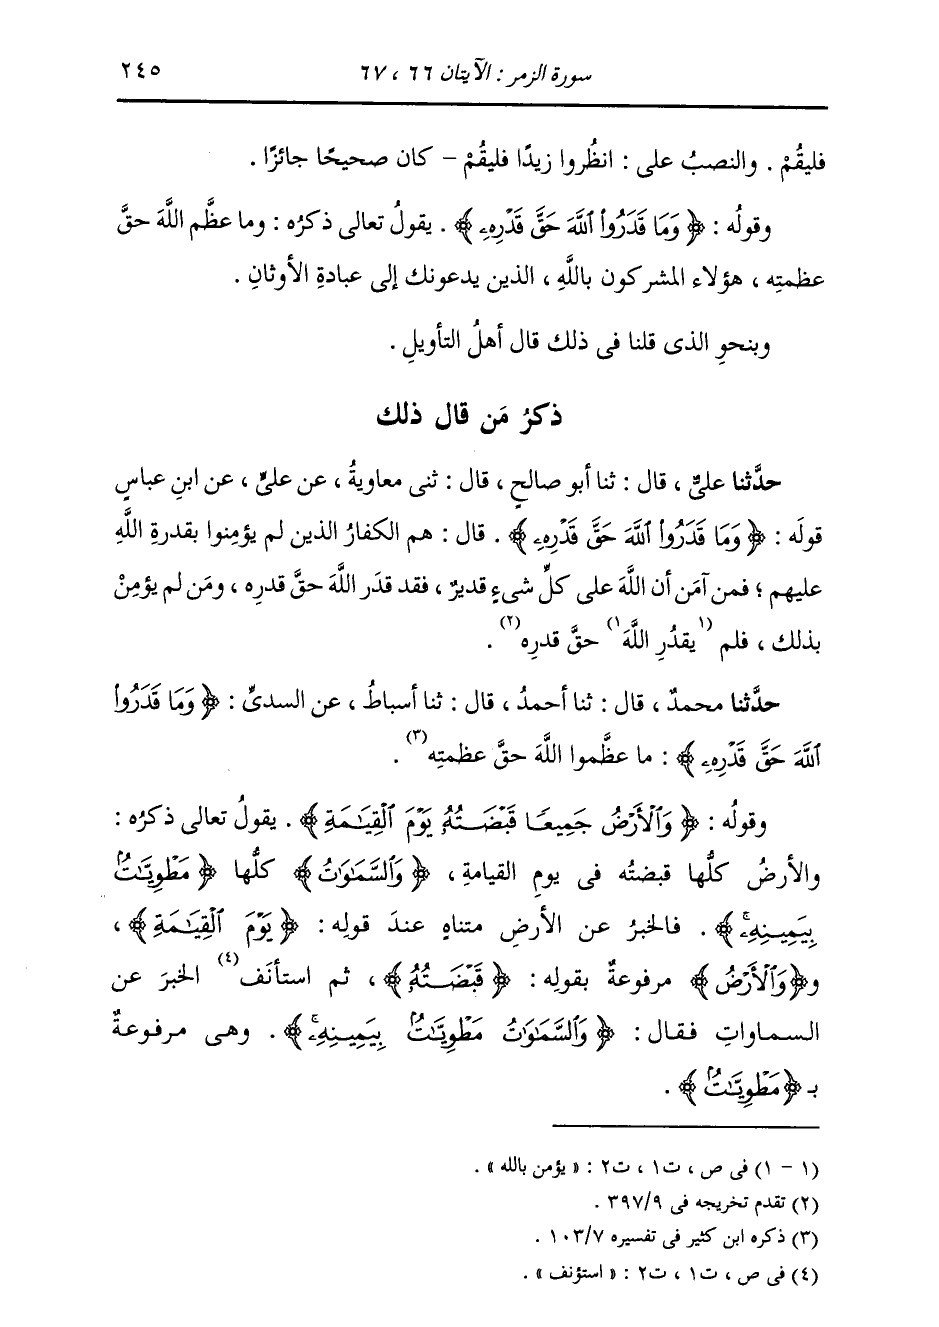 سورة الزمر : الآيتان ٦٦ ، ٦٧ ٢٤٥
فليقُمْ . والنصبُ على : انظُروا زيدًا فليقُمْ – كان صحيحًا جائزًا .
وقولُه : ﴿ وَمَا قَدَرُوا۟ ٱللَّهَ حَقَّ قَدْرِهِۦ ﴾ . يقولُ تعالى ذكرُه : وما عظَّم اللَّهَ حقَّ
عظمتِه ، هؤلاء المشركون باللَّهِ ، الذين يدعونك إلى عبادةِ الأوثانِ .
وبنحوِ الذى قلنا فى ذلك قال أهلُ التأويلِ .
ذكرُ مَن قال ذلك
حدَّثنا علىٌّ ، قال : ثنا أبو صالحٍ ، قال : ثنى معاويةُ ، عن علىٍّ ، عن ابنِ عباسٍ
قولَه : ﴿ وَمَا قَدَرُوا۟ ٱللَّهَ حَقَّ قَدْرِهِۦ ﴾ . قال : هم الكفارُ الذين لم يؤمِنوا بقدرةِ اللَّهِ
عليهم ؛ فمن آمَن أن اللَّهَ على كلِّ شىءٍ قديرٌ ، فقد قدَر اللَّهَ حقَّ قدرِه ، ومَن لم يؤمِنْ
بذلك ، فلم (١يقدُرِ اللَّهَ١) حقَّ قدرِه(٢) .
حدَّثنا محمدٌ ، قال : ثنا أحمدُ ، قال : ثنا أسباطُ ، عن السدىِّ : ﴿ وَمَا قَدَرُوا۟
ٱللَّهَ حَقَّ قَدْرِهِۦ ﴾ : ما عظَّموا اللَّهَ حقَّ عظمتِه(٣) .
وقولُه : ﴿ وَٱلْأَرْضُ جَمِيعًا قَبْضَتُهُۥ يَوْمَ ٱلْقِيَـٰمَةِ ﴾ . يقولُ تعالى ذكرُه :
والأرضُ كلُّها قبضتُه فى يومِ القيامةِ ، ﴿ وَٱلسَّمَـٰوَٰتُ ﴾ كلُّها ﴿ مَطْوِيَّـٰتٌۢ
بِيَمِينِهِۦۚ ﴾ . فالخبرُ عن الأرضِ متناهٍ عندَ قولِه : ﴿ يَوْمَ ٱلْقِيَـٰمَةِ ﴾ ،
و﴿ وَٱلْأَرْضُ ﴾ مرفوعةٌ بقولِه : ﴿ قَبْضَتُهُۥ ﴾ ، ثم استأنَف(٤) الخبرَ عن
السماواتِ فقال : ﴿ وَٱلسَّمَـٰوَٰتُ مَطْوِيَّـٰتٌۢ بِيَمِينِهِۦۚ ﴾ . وهى مرفوعةٌ
بـ ﴿ مَطْوِيَّـٰتٌۢ ﴾ .
(١ – ١) فى ص ، ت١ ، ت٢ : « يؤمن بالله » .
(٢) تقدم تخريجه فى ٣٩٧/٩ .
(٣) ذكره ابن كثير فى تفسيره ١٠٣/٧ .
(٤) فى ص ، ت١ ، ت٢ : « استؤنف » .